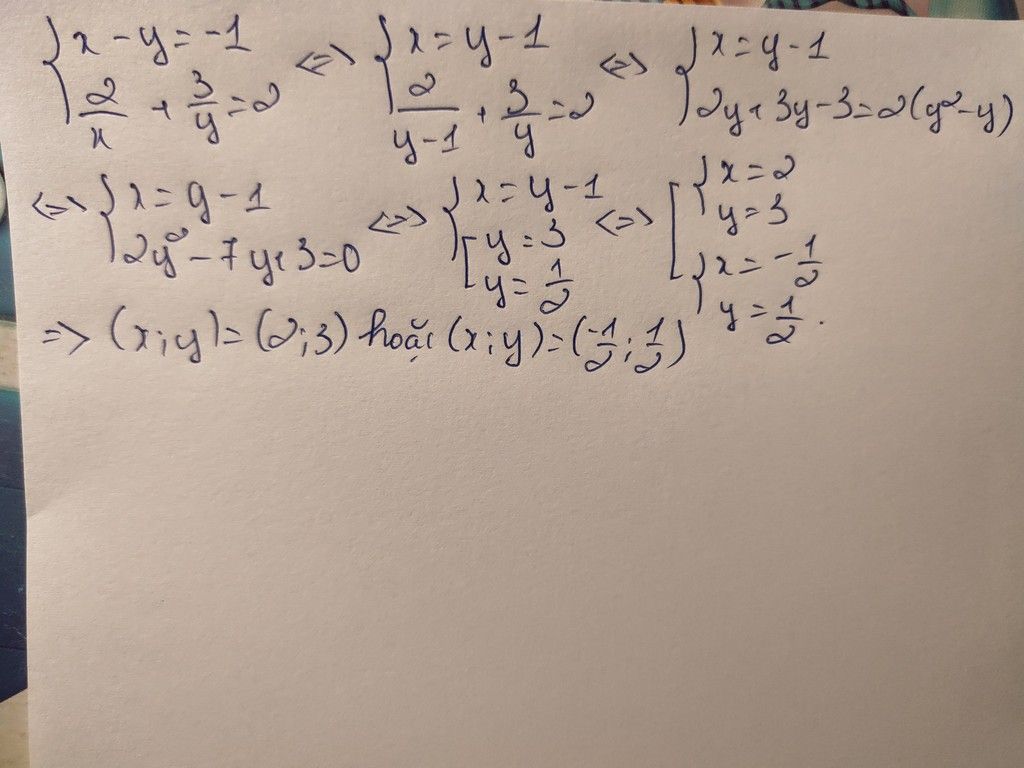 { x - y = -1 ; 2/x + 3/y = 2 <=> { x = y - 1 ; 2/(y-1) + 3/y = 2 <=> { x = y - 1 ; 2y + 3y - 3 = 2(y² - y)
<=> { x = y - 1 ; 2y² - 7y + 3 = 0 <=> { x = y - 1 ; [ y = 3 ; y = 1/2 <=> [ { x = 2 ; y = 3 ; { x = -1/2 ; y = 1/2.
=> (x;y) = (2;3) hoặc (x;y) = (-1/2; 1/2)